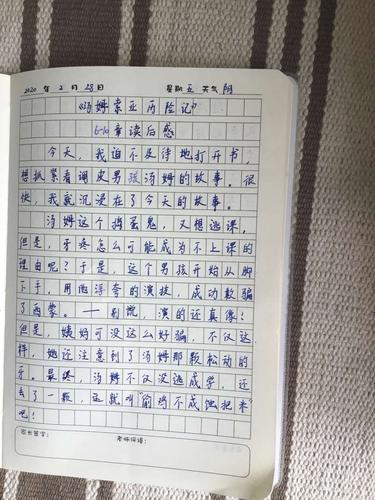 2020 年 2 月 28 日 星期 五 天气 阴
《汤姆索亚历险记》
6-10章读后感
今天，我迫不及待地打开书，
想抓紧看调皮男孩汤姆的故事。很
快，我就沉浸在了今天的故事。
汤姆这个捣蛋鬼，又想逃课，
但是，牙疼怎么可能成为不上课的
理由呢？于是，这个男孩开始从脚
下手，用他浮夸的演技，成功欺骗
了西蒙。——别说，演的还真像！
但是，姨妈可没这么好骗，不仅这
样，她还注意到了汤姆那颗松动的
牙。最终，汤姆不仅没逃成学，还
去了一颗，这就叫“偷鸡不成蚀把米”
吧！
家长签字： 老师评语：